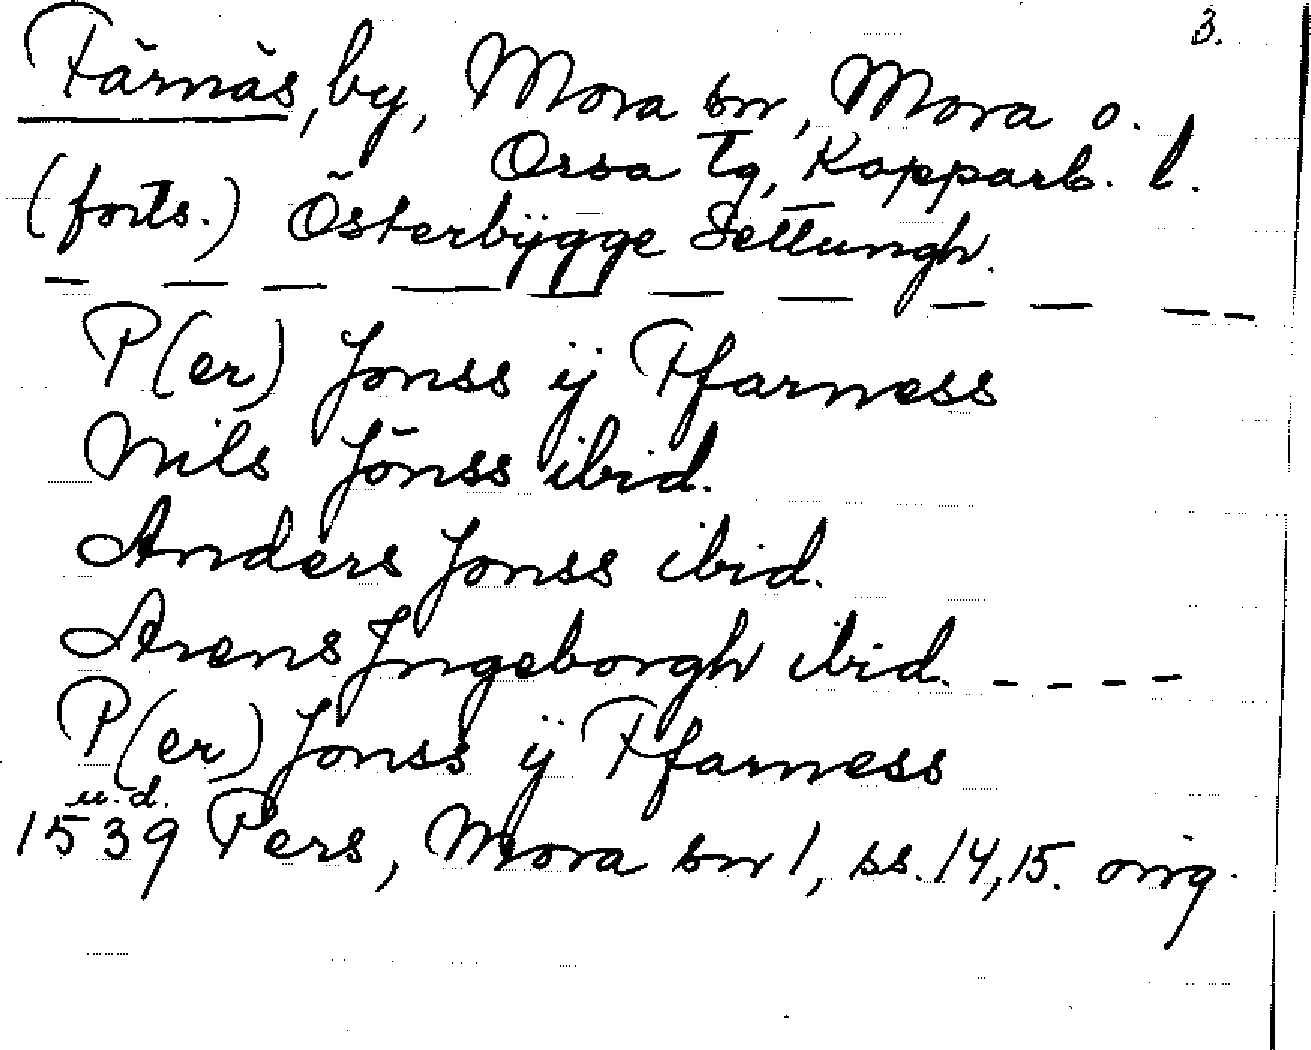 3.
Färnäs, by, Mora sn, Mora o.
Orsa tg, Kopparb. l.
(forts.) Österbÿgge Settungh.
— — — — — — — — — — —
P(er) Jonss ÿ Ffarness
Nils Jönss ibid.
Anders Jonss ibid.
Arens Jngeborgh ibid. - - - -
P(er) Jonss ÿ Ffarness
u.d.
1539 Pers, Mora sn 1, ss. 14, 15. orig.